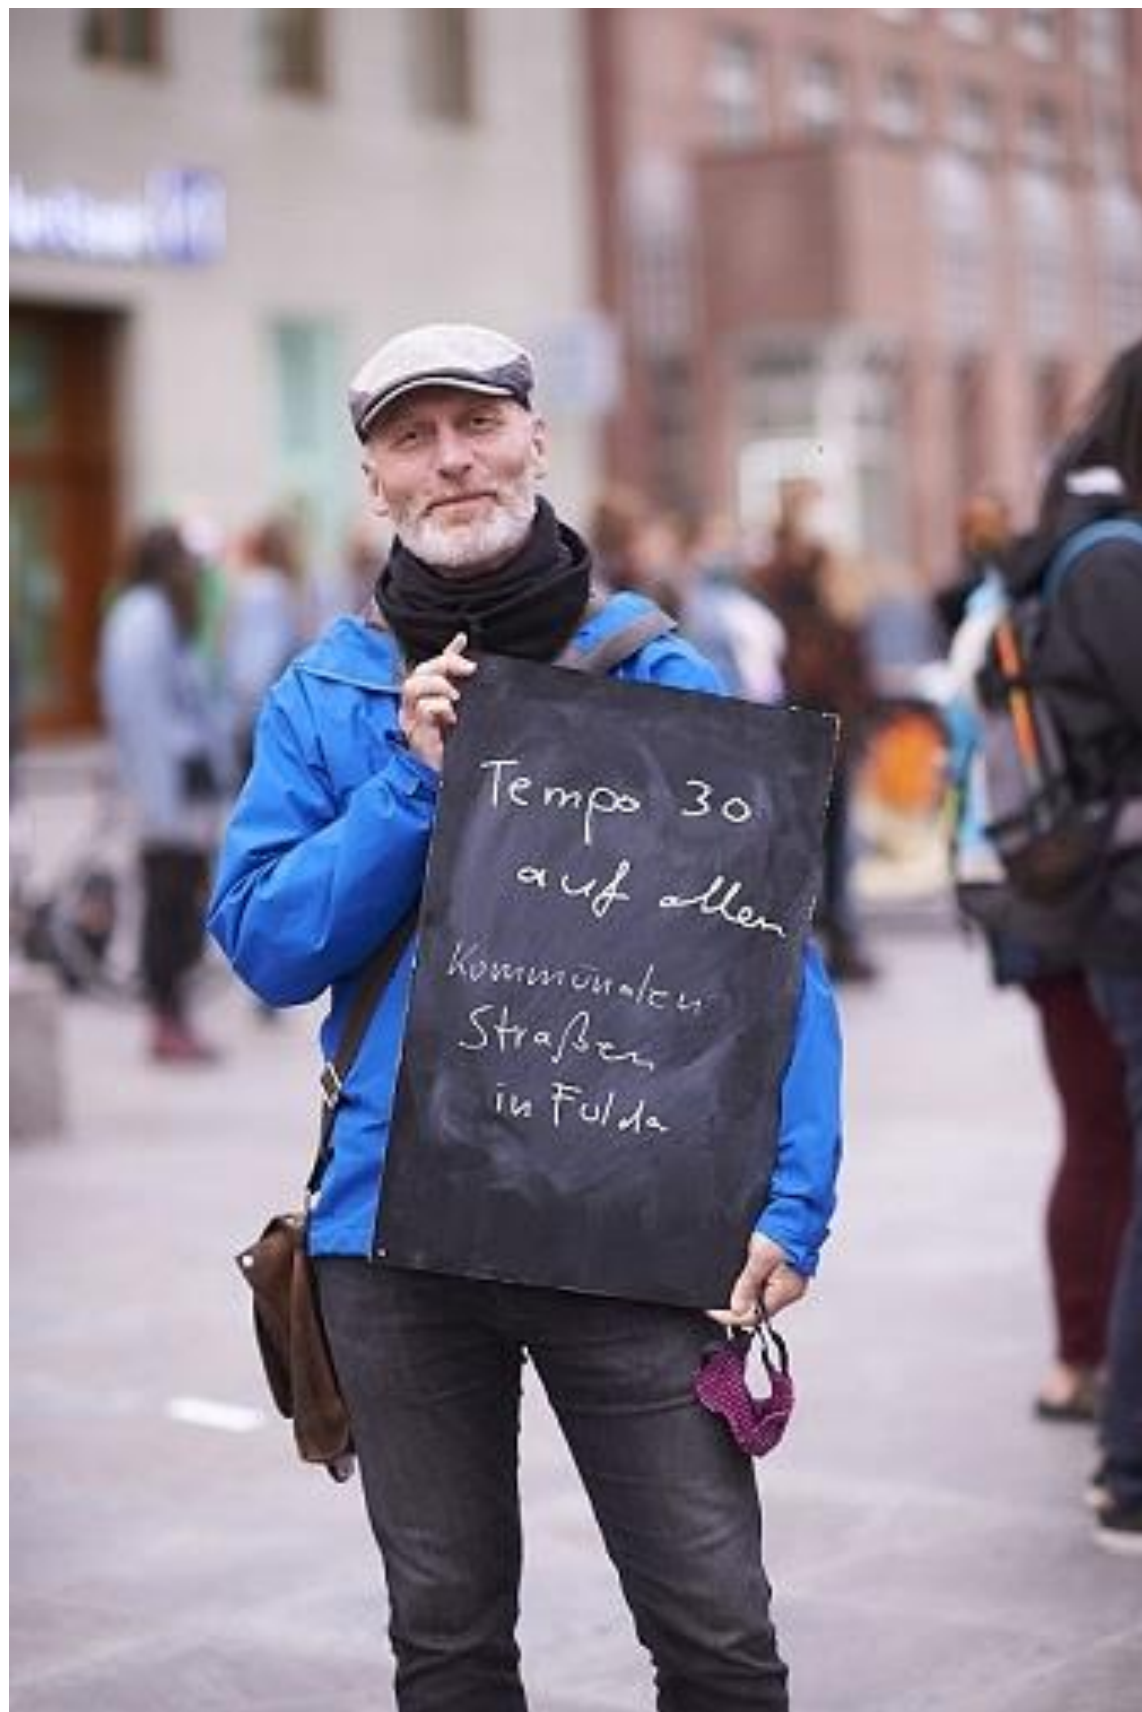 Tempo 30
auf allen
Kommunalen
Straßen
in Fulda